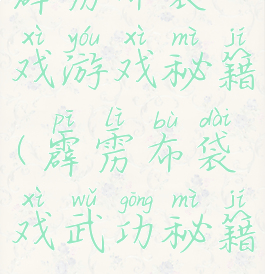 xì yóu xì mì jí
戏游戏秘籍
pī lì bù dài
(霹雳布袋
xì wǔ gōng mì jí
戏武功秘籍